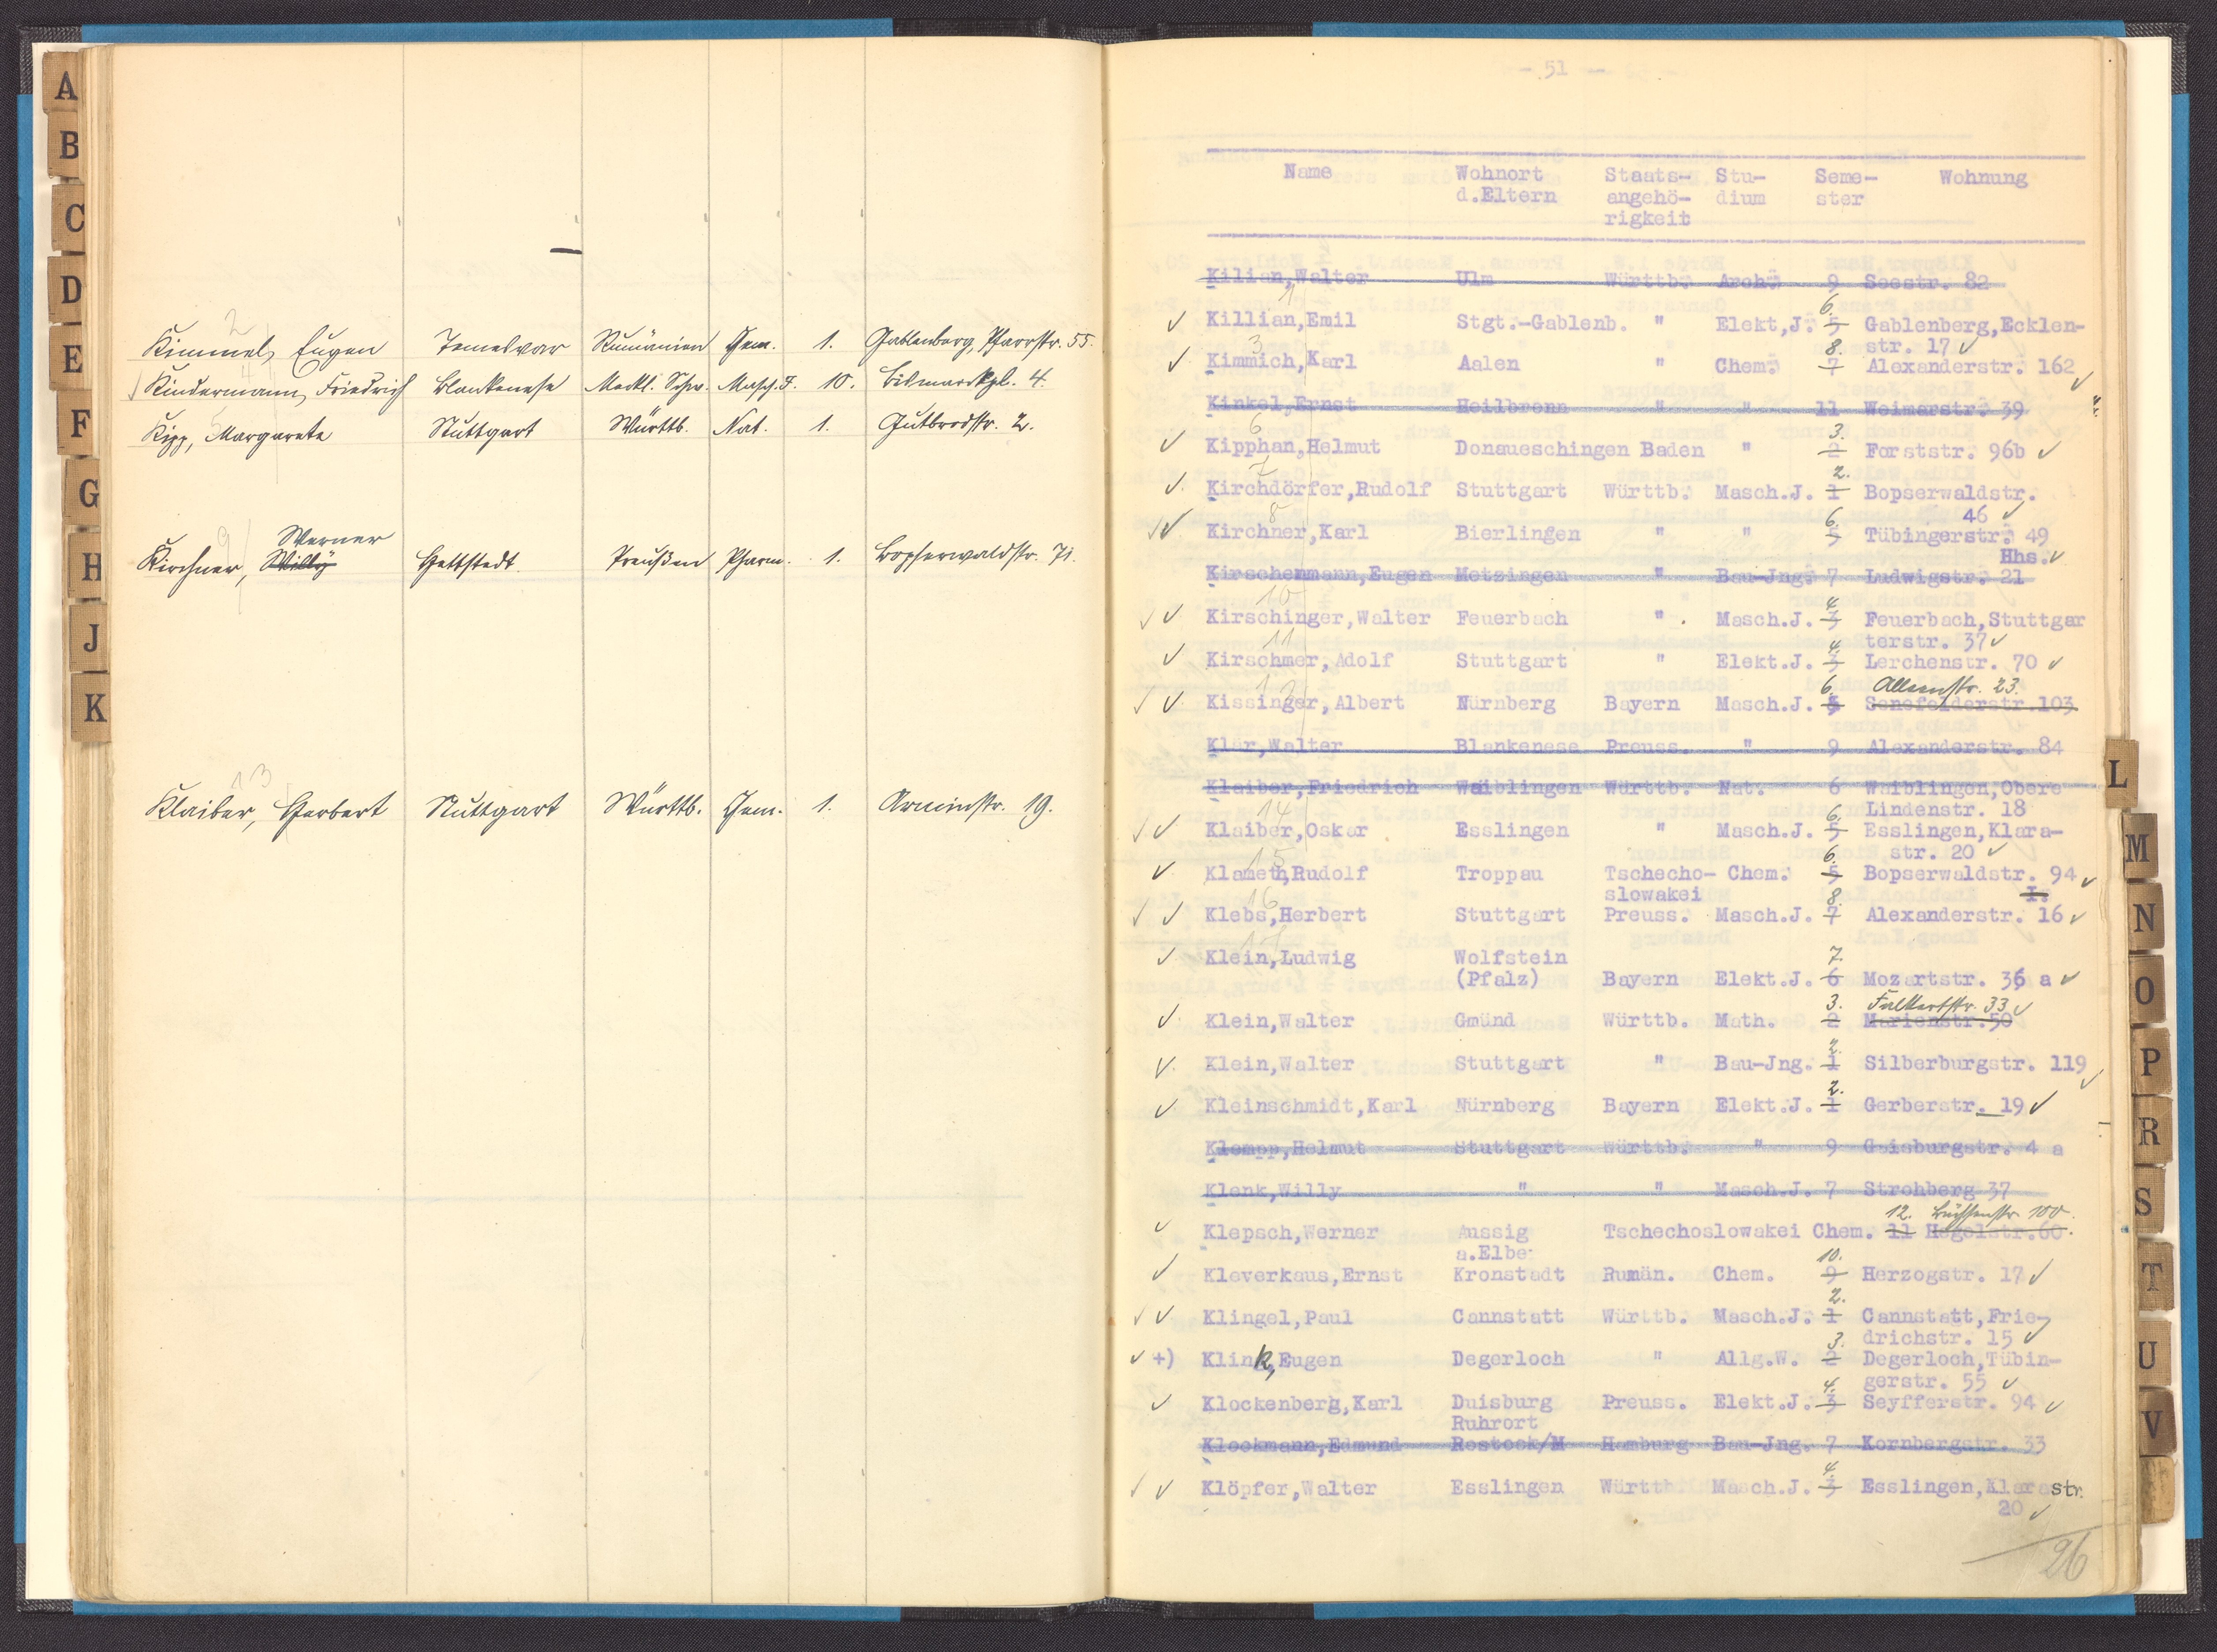 A
B
C
D
E
F
G
H
J
K
2
Kimmel, Eugen Temesvar Rumänien Chem. 1. Gablenberg, Pfarrstr. 55.
4
Kindermann, Friedrich Blankenese Meckl. Schw. Masch.J. 10. Bismarckpl. 4.
5
Kipp, Margarete Stuttgart Württb. Nat. 1. Gutbrodstr. 2.
9
Werner
Kirchner, Willy Hettstedt Preußen Pharm. 1. Bopserwaldstr. 71.
13
Klaiber, Herbert Stuttgart Württb. Chem. 1. Arminstr. 19.
- 51 -
Name Wohnort Staats- Stu- Seme- Wohnung
d.Eltern angehö- dium ster
rigkeit
Kilian,Walter Ulm Württb. Arch. 9 Seestr. 82
1 6.
✓ Killian,Emil Stgt.-Gablenb. " Elekt,J. 5 Gablenberg,Ecklen-
3 8. str. 17 ✓
✓ Kimmich,Karl Aalen " Chem. 7 Alexanderstr. 162 ✓
Kinkel,Ernst Heilbronn " " 11 Weimarstr. 39
6 3.
✓ Kipphan,Helmut Donaueschingen Baden " 2 Forststr. 96b ✓
7 2.
✓ Kirchdörfer,Rudolf Stuttgart Württb. Masch.J. 1 Bopserwaldstr.
8 6. 46 ✓
✓✓ Kirchner,Karl Bierlingen " " 5 Tübingerstr. 49
Hhs. ✓
Kirschenmann,Eugen Metzingen " Bau-Jng. 7 Ludwigstr. 21
10 4.
✓✓ Kirschinger,Walter Feuerbach " Masch.J. 3 Feuerbach,Stuttgar
11 4. terstr. 37 ✓
✓ Kirschmer,Adolf Stuttgart " Elekt.J. 3 Lerchenstr. 70 ✓
12 6. Alleenstr. 23.
✓✓ Kissinger,Albert Nürnberg Bayern Masch.J. 5 Senefelderstr.103
Klär,Walter Blankenese Preuss. " 9 Alexanderstr. 84
Klaiber,Friedrich Waiblingen Württb. Nat. 6 Waiblingen,Obere
14 6. Lindenstr. 18
✓✓ Klaiber,Oskar Esslingen " Masch.J. 5 Esslingen,Klara-
15 6. str. 20 ✓
✓ Klameth,Rudolf Troppau Tschecho- Chem. 5 Bopserwaldstr. 94 ✓
16 slowakei 8. I.
✓✓ Klebs,Herbert Stuttgart Preuss. Masch.J. 7 Alexanderstr. 16 ✓
17
✓ Klein,Ludwig Wolfstein 7.
(Pfalz) Bayern Elekt.J. 6 Mozartstr. 36 a ✓
3. Falkertstr. 33 ✓
✓ Klein,Walter Gmünd Württb. Math. 2 Marienstr.50
2.
✓ Klein,Walter Stuttgart " Bau-Jng. 1 Silberburgstr. 119 ✓
2.
✓ Kleinschmidt,Karl Nürnberg Bayern Elekt.J. 1 Gerberstr. 19 ✓
Klempp,Helmut Stuttgart Württb. " 9 Gaisburgstr. 4 a
Klenk,Willy " " Masch.J. 7 Strohberg 37
12. Büchsenstr. 100.
✓ Klepsch,Werner Aussig Tschechoslowakei Chem. 11 Hegelstr.60.
a.Elbe 10.
✓ Kleverkaus,Ernst Kronstadt Rumän. Chem. 9 Herzogstr. 17 ✓
2.
✓✓ Klingel,Paul Cannstatt Württb. Masch.J. 1 Cannstatt,Frie-
3. drichstr. 15 ✓
✓ +) Klink,Eugen Degerloch " Allg.W. 2 Degerloch,Tübin-
4. gerstr. 55 ✓
✓ Klockenberg,Karl Duisburg Preuss. Elekt.J. 3 Seyfferstr. 94 ✓
Ruhrort
Klockmann,Edmund Rostock/M Hamburg Bau-Jng. 7 Kornbergstr. 33
4.
✓✓ Klöpfer,Walter Esslingen Württb. Masch.J. 3 Esslingen,Klarastr.
20 ✓
26
L
M
N
O
P
R
S
T
U
V